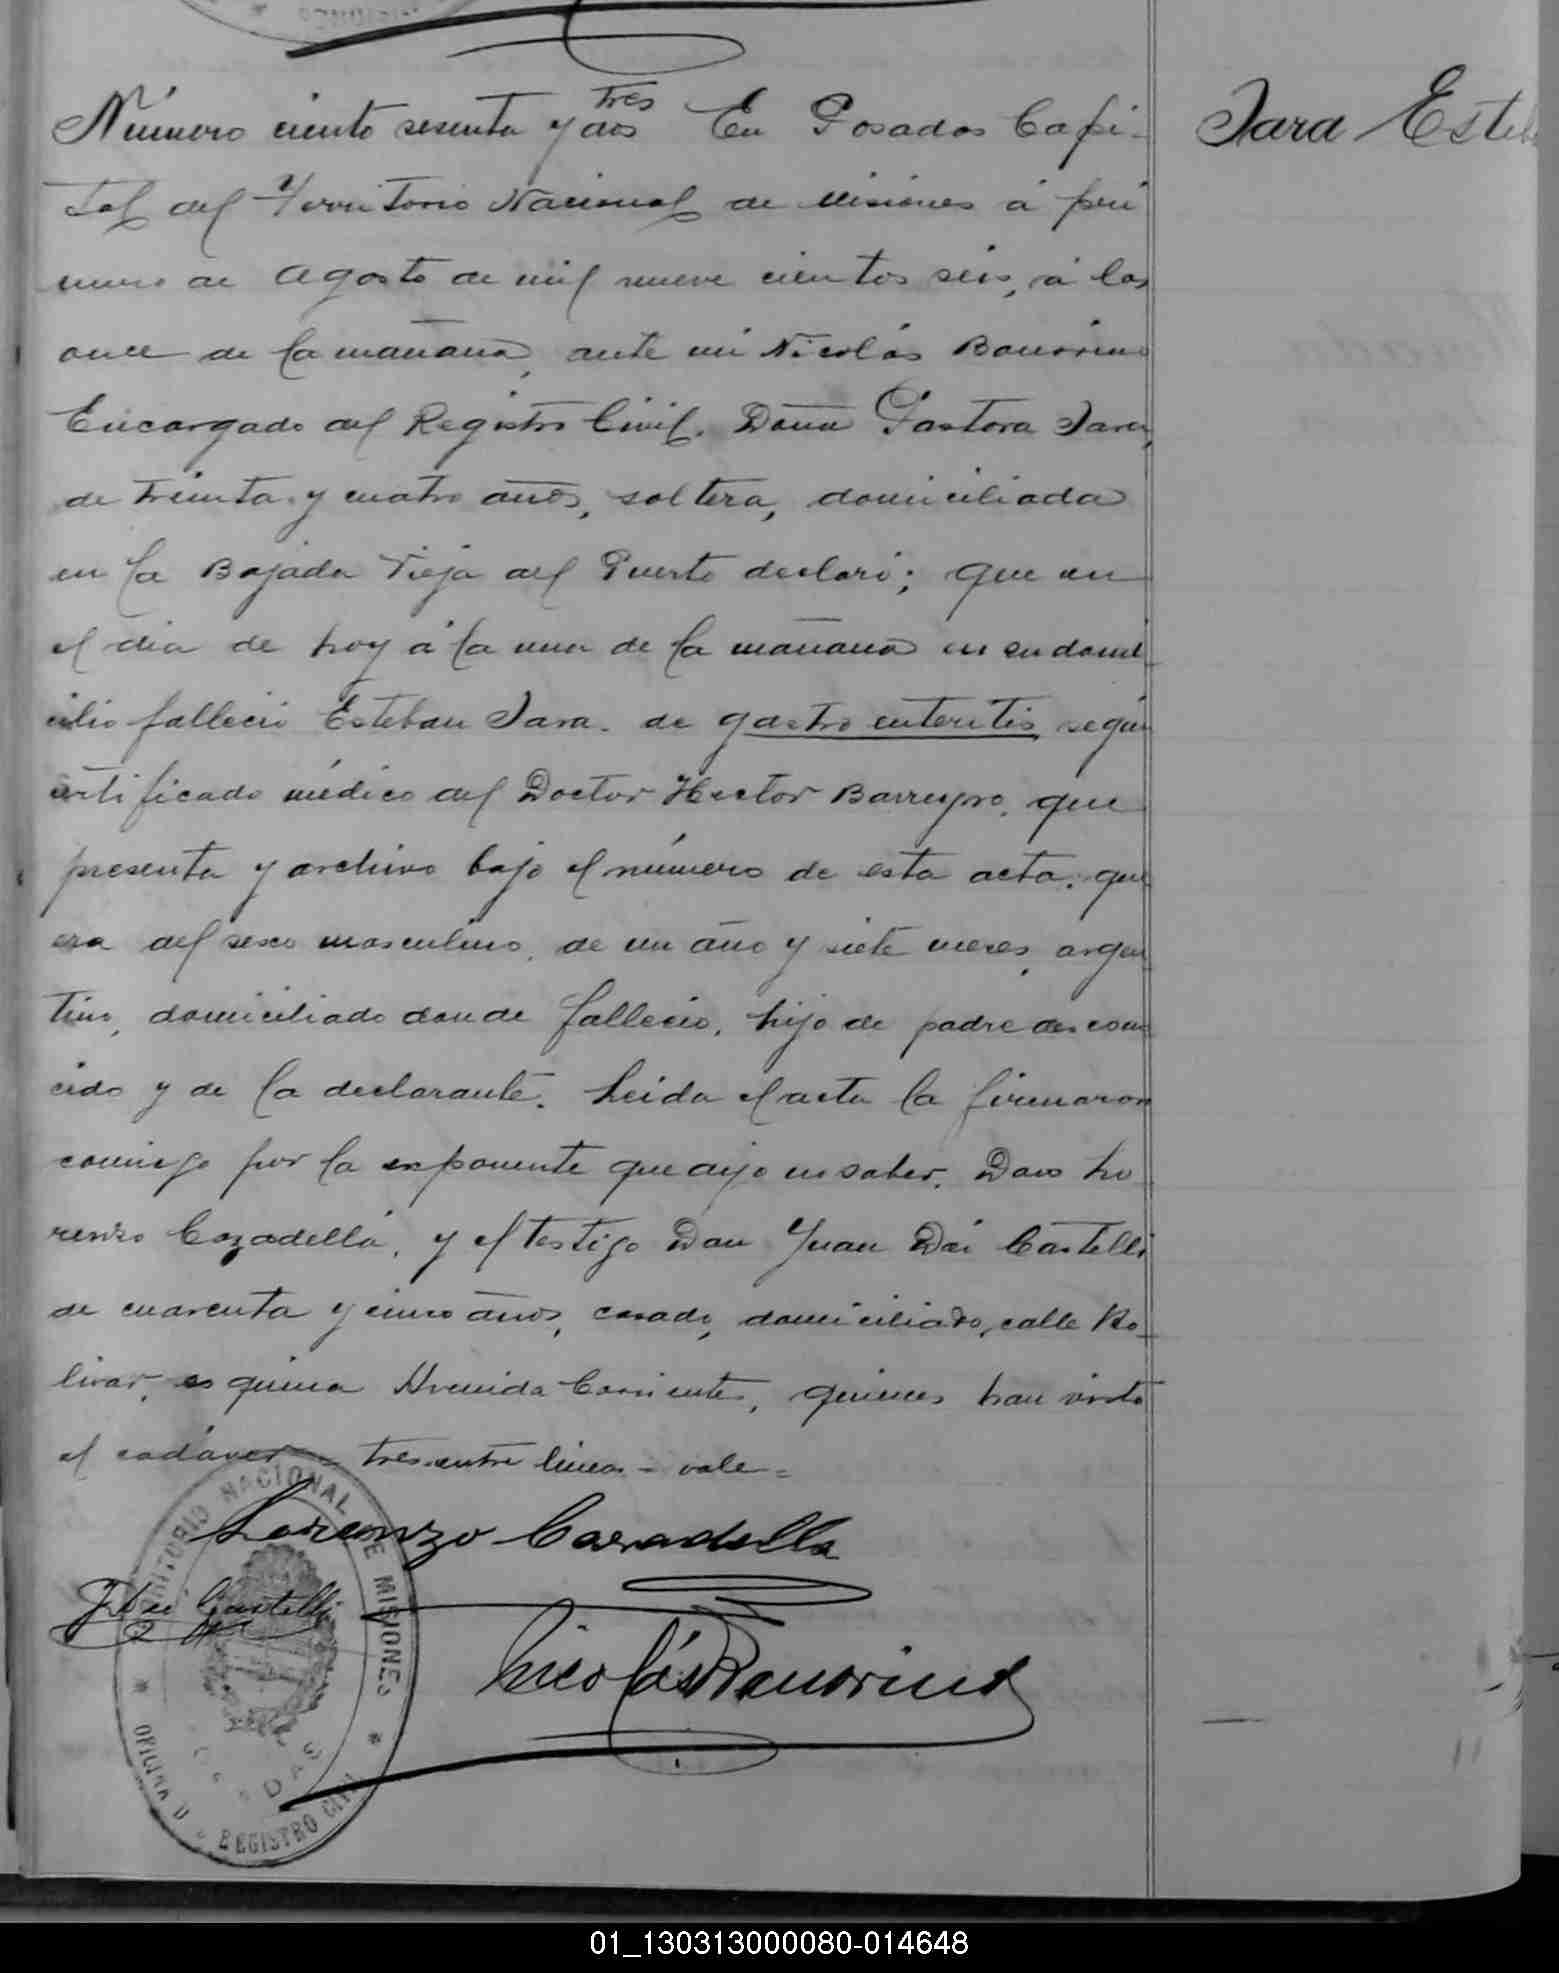 Número ciento sesenta y dos tres En Posadas Capi-
tal del Territorio Nacional de Misiones á pri
mero de Agosto de mil nueve cientos seis, á las
once de la mañana, ante mi Nicolás Bonorino
Encargado del Registro Civil. Doña Pastora Jara,
de treinta y cuatro años, soltera, domiciliada
en la Bajada Vieja del Puerto declaró; que en
el dia de hoy á la una de la mañana en su domi
cilio falleció Esteban Jara. de gastro enteritis, según
certificado médico del Doctor Hector Barreyro, que
presenta y archivo bajo el número de esta acta. que
era del sexo masculino, de un año y siete meses, argen
tino, domiciliado donde falleció, hijo de padre descono
cido y de la declarante. Leida el acta la firmaron
conmigo por la exponente que dijo no saber. Don Lo
renzo Cazadella, y el testigo Don Juan Dei Castelli
de cuarenta y cinco años, casado, domiciliado, calle Bo-
livar, esquina Avenida Corrientes, quienes han visto
el cadáver = tres entre lineas - vale =
Lorenzo Casadella
J Dei Castelli
Nicolás Bonorino
Jara Esteb
TERRITORIO NACIONAL DE MISIONES
REGISTRO CIVIL
01_130313000080-014648